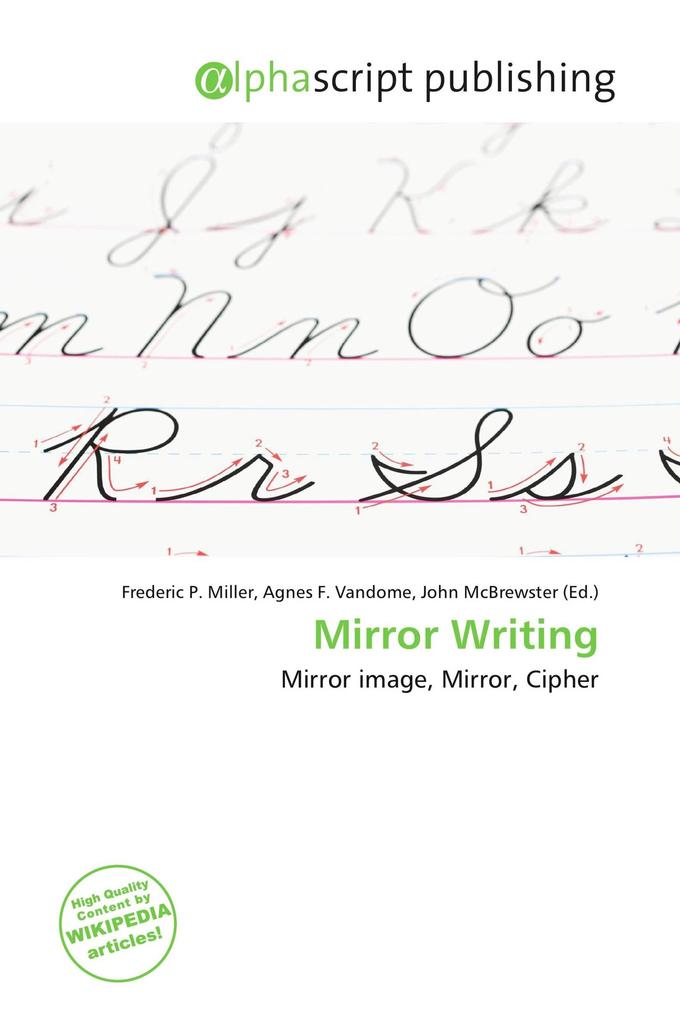 αlphascript publishing
J j K k
m N n O o
1 2 3 4 R 1 r 2 3 1 2 S 1 s 2 3 4
1 1 2
Frederic P. Miller, Agnes F. Vandome, John McBrewster (Ed.)
Mirror Writing
Mirror image, Mirror, Cipher
High Quality
Content by
WIKIPEDIA
articles!